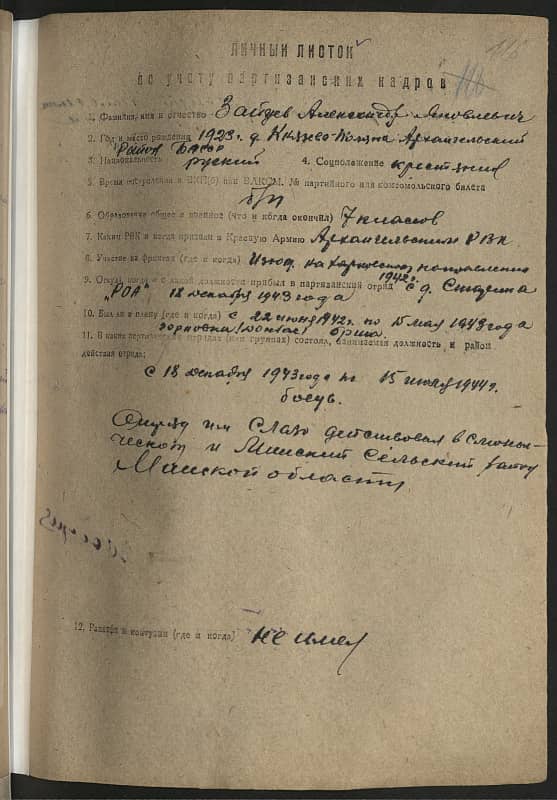 116
ЛИЧНЫЙ ЛИСТОК
по учету партизанских кадров
1. Фамилия, имя и отчество Зайцев Александр Яковлевич
2. Год и место рождения 1923г. д. Князево-Поляна Архангельский
район БАССР
3. Национальность руский 4. Соцположение крестьянин
5. Время вступления в ВКП(б) или ВЛКСМ. № партийного или комсомольского билета
б/п
6. Образование общее и военное (что и когда окончил) 7 классов
7. Каким РВК и когда призван в Красную Армию Архангельским РВК
8. Участие на фронтах (где и когда) на Харьковском направлении
1942г.
9. Откуда, когда и с какой должности прибыл в партизанский отряд с д.
"РОА" 18 декабря 1943 года
10. Был ли в плену (где и когда) с 22 июня 1942г. по 15 мая 1943 года
горловка (донбас) Орша.
11. В каких партизанских отрядах (или группах) состоял, занимаемая должность и район
действия отряда:
с 18 декабря 1943 года по 15 июля 1944г.
боец.
Отряд им Лазо действовал в Смолев-
ическом и Минский Сельский район
Минской области
12. Ранения и контузии (где и когда) не имел